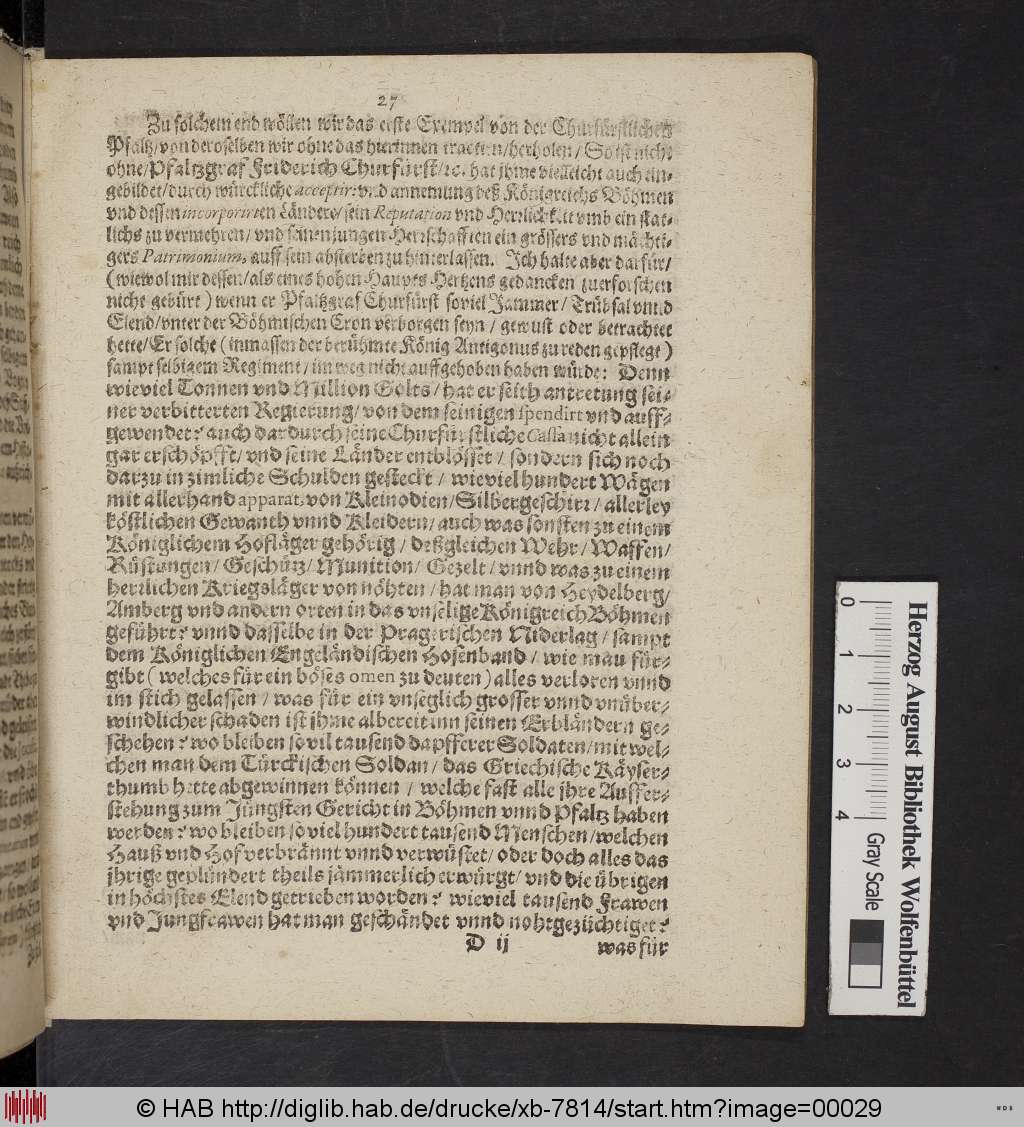 27
Zu solchem end wöllen wir das erste Exempel von der Churfürstlichen
Pfaltz/von deroselben wir ohne das hierinnen tractirn/herholen/ So ist nicht
ohne/Pfaltzgraf Friderich Churfürst/ꝛc. hat jhme vielleicht auch ein-
gebildet/durch würckliche acceptir: vnd annemung deß Königreichs Böhmen
vnd dessen incorporirten Ländere/sein Reputation vnd Herrlichkeit vmb ein stat-
lichs zu vermehren/ vnd seinen jungen Herrschafften ein grössers vnd mächti-
gers Patrimonium, auff sein absterben zu hinterlassen. Ich halte aber darfür/
(wiewol mir dessen/als eines hohen Haupts Hertzens gedancken zuerforschen
nicht gebürt) wenn er Pfaltzgraf Churfürst soviel Jammer/ Trübsal vnnd
Elend/vnter der Böhmischen Cron verborgen seyn/ gewust oder betrachtet
hette/Er solche (inmassen der berühmte König Antigonus zu reden gepflegt)
sampt selbigem Regiment/ im weg nicht auffgehoben haben würde: Denn
wieviel Tonnen vnd Million Golts/ hat er seith antretung sei-
ner verbitterten Regierung/ von dem seinigen spendirt vnd auff-
gewendet? auch dardurch seine Churfürstliche Cassa nicht allein
gar erschöpfft/ vnd seine Länder entblösset/ sondern sich noch
darzu in zimliche Schulden gesteckt/ wieviel hundert Wägen
mit allerhand apparat, von Kleinodien/Silbergeschirr/ allerley
köstlichen Gewanth vnnd Kleidern/ auch was sonsten zu einem
Königlichem Hofläger gehörig/ deßgleichen Wehr/ Waffen/
Rüstungen/ Geschütz/ Munition/ Gezelt/ vnnd was zu einem
herrlichen Kriegsläger von nöhten/ hat man von Heydelberg/
Amberg vnd andern orten in das vnselige Königreich Böhmen
geführt? vnnd dasselbe in der Pragerischen Niderlag/ sampt
dem Königlichen Engeländischen Hosenband/ wie mau für-
gibt (welches für ein böses omen zu deuten) alles verloren vnnd
im stich gelassen/ was für ein vnseglich grosser vnnd vnüber-
windlicher schaden ist jhme albereit inn seinen Erbländern ge-
schehen? wo bleiben sovil tausend dapfferer Soldaten/mit wel-
chen man dem Türckischen Soldan/ das Griechische Käyser-
thumb hette abgewinnen können/ welche fast alle jhre Auffer-
stehung zum Jüngsten Gericht in Böhmen vnnd Pfaltz haben
werden? wo bleiben soviel hundert tausend Menschen/welchen
Hauß vnd Hof verbrännt vnnd verwüstet/ oder doch alles das
jhrige geplündert theils jämmerlich erwürgt/ vnd die übrigen
in höchstes Elend getrieben worden? wieviel tausend Frawen
vnd Jungfrawen hat man geschändet vnnd nohtgezüchtiget?
D ij was für
Herzog August Bibliothek Wolfenbüttel
0 1 2 3 4 Gray Scale
© HAB http://diglib.hab.de/drucke/xb-7814/start.htm?image=00029